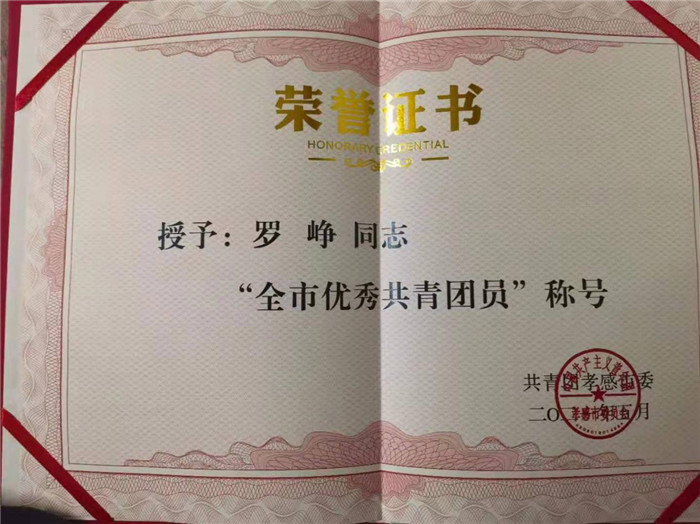 荣誉证书
HONORARY CREDENTIAL
授予：罗 峥 同志
“全市优秀共青团员”称号
共青团孝感市委
二〇二 年五月
中国共产主义青年团
孝感市委员会